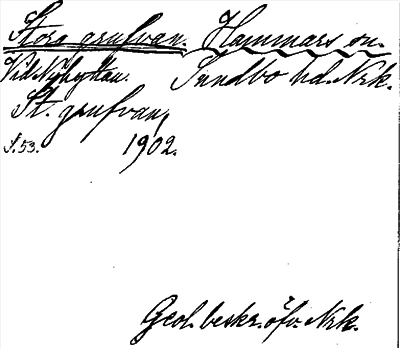 Stora grufvan. Hammars sn.
Vid Nyhyttan. Sundbo hd. Nrk.
St. grufvan,
S. 53. 1902.
Geol. beskr. öfv. Nrk.